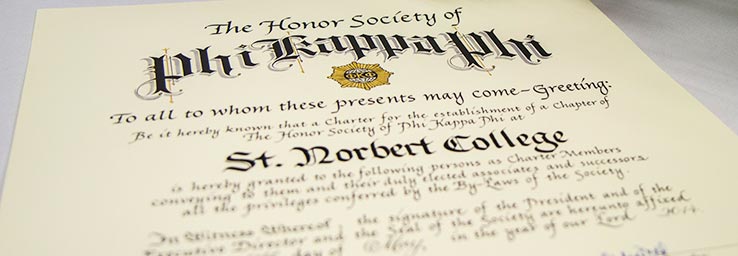 The Honor Society of
Phi Kappa Phi
To all to whom these presents may come-Greeting:
Be it hereby known that a Charter for the establishment of a Chapter of
The Honor Society of Phi Kappa Phi at
St. Norbert College
is hereby granted to the following persons as Charter Members
conveying to them and their duly elected associates and successors
all the privileges conferred by the By-Laws of the Society.
In Witness Whereof the signature of the President and of the
Executive Director and the Seal of the Society are hereunto affixed
day of May, in the year of our Lord